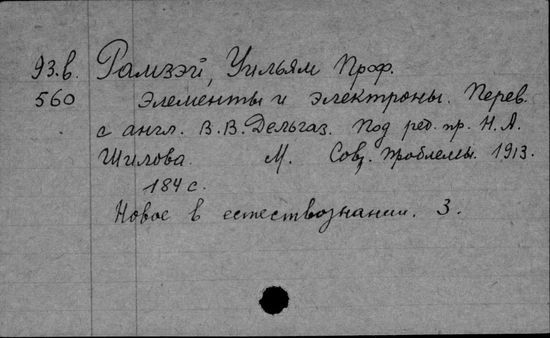 93.в. Рамзэй, Уильям Проф.
560 Элементы и электроны. Перев.
с англ. В.В. Дельгаз. Под ред. пр. Н.А.
Шилова. М. Совр. проблемы. 1913.
184 с.
Новое в естествознании. 3.